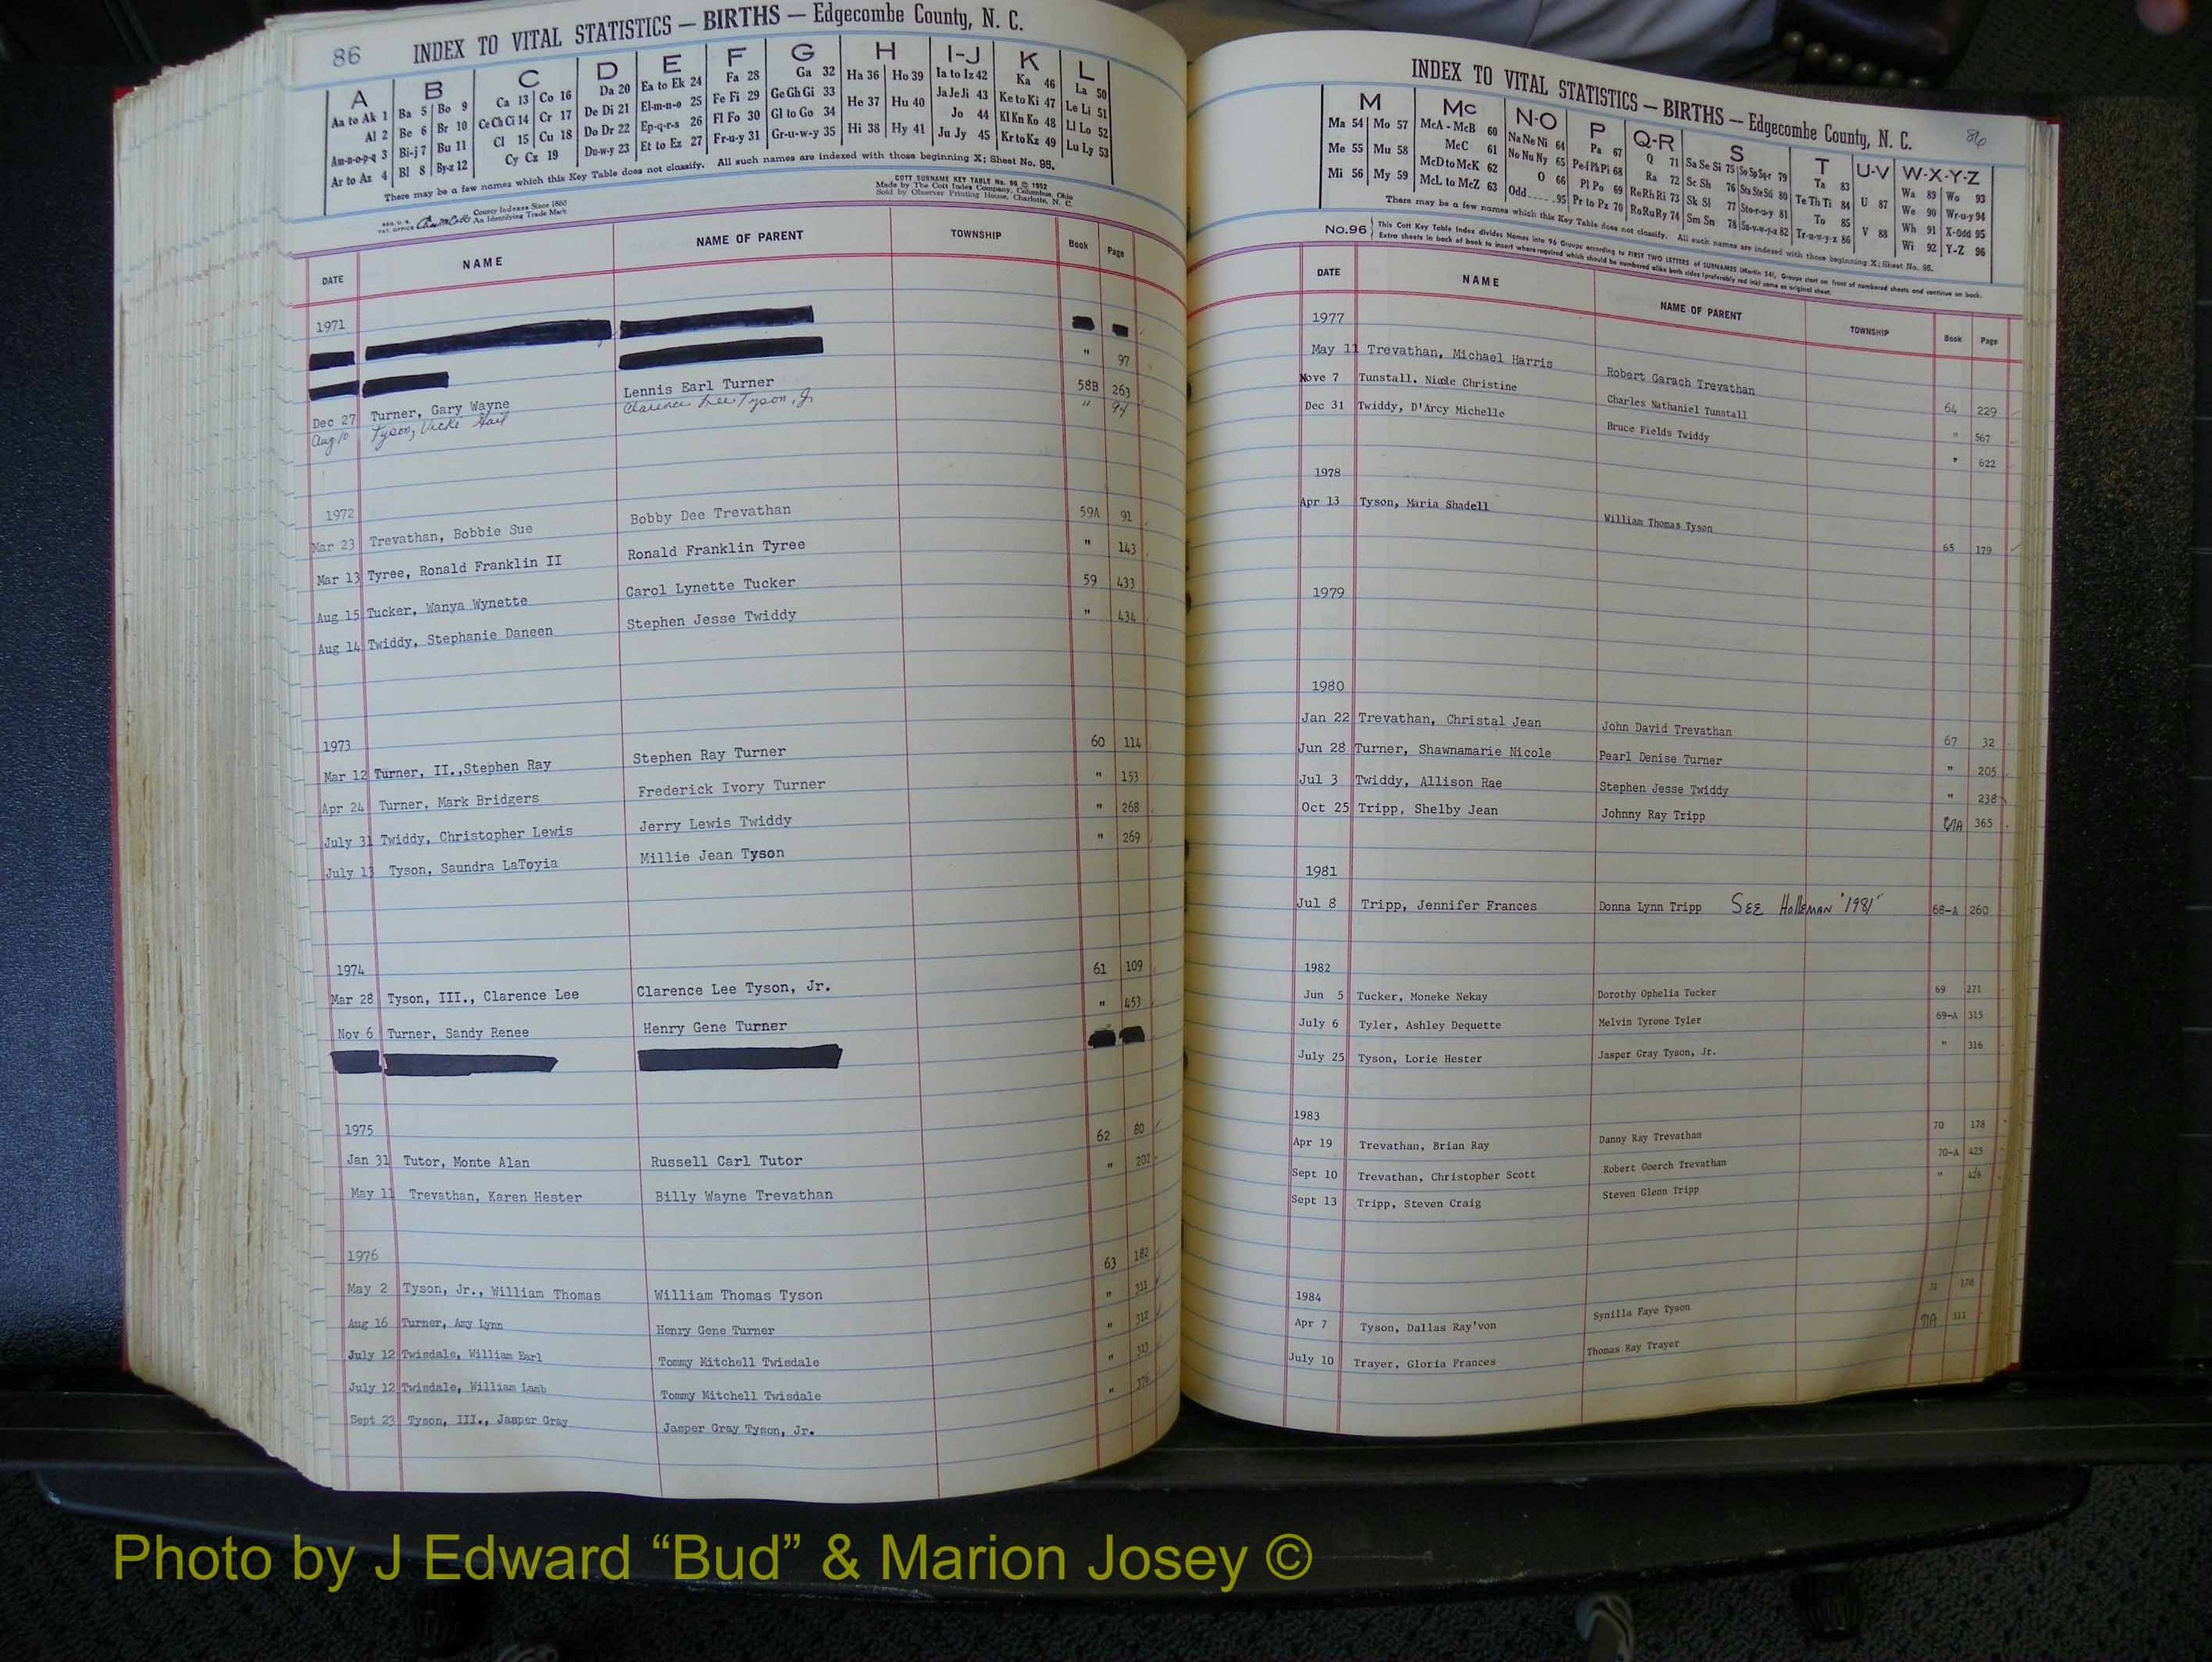 86
INDEX TO VITAL STATISTICS — BIRTHS — Edgecombe County, N. C.
A B C D E F G H I-J K L
Aa to Ak 1 Ba 5 Bo 9 Ca 13 Co 16 Da 20 Ea to Ek 24 Fa 28 Ga 32 Ha 36 Ho 39 Ia to Iz 42 Ka 46 La 50
Al 2 Be 6 Br 10 Ce Ch Ci 14 Cr 17 De Di 21 El-m-n-o 25 Fe Fi 29 Ge Gh Gi 33 He 37 Hu 40 Ja Je Ji 43 Ke to Ki 47 Le Li 51
Am-n-o-p-q 3 Bi-j 7 Bu 11 Cl 15 Cu 18 Do Dr 22 Ep-q-r-s 26 Fl Fo 30 Gl to Go 34 Hi 38 Hy 41 Jo 44 Kl Kn Ko 48 Ll Lo 52
Ar to Az 4 Bl 8 By-z 12 Cy Cz 19 Du-w-y 23 Et to Ez 27 Fr-u-y 31 Gr-u-w-y 35 Ju Jy 45 Kr to Kz 49 Lu Ly 53
There may be a few names which this Key Table does not classify. All such names are indexed with those beginning X; Sheet No. 95.
COTT SURNAME KEY TABLE No. 96 © 1952
Made by The Cott Index Company, Columbus, Ohio
Sold by Observer Printing House, Charlotte, N. C.
REG. U. S. PAT. OFFICE County Indexes Since 1888
An Identifying Trade Mark
DATE NAME NAME OF PARENT TOWNSHIP Book Page
1971
" 97
Dec 27 Turner, Gary Wayne Lennis Earl Turner 58B 263
Aug 10 Tyson, Vicke Gail Clarence Lee Tyson, Jr " 94
1972
Mar 23 Trevathan, Bobbie Sue Bobby Dee Trevathan 59A 91
Mar 13 Tyree, Ronald Franklin II Ronald Franklin Tyree " 143
Aug 15 Tucker, Wanya Wynette Carol Lynette Tucker 59 433
Aug 14 Twiddy, Stephanie Daneen Stephen Jesse Twiddy " 434
1973
Mar 12 Turner, II.,Stephen Ray Stephen Ray Turner 60 114
Apr 24 Turner, Mark Bridgers Frederick Ivory Turner " 153
July 31 Twiddy, Christopher Lewis Jerry Lewis Twiddy " 268
July 13 Tyson, Saundra LaToyia Millie Jean Tyson " 269
1974
Mar 28 Tyson, III., Clarence Lee Clarence Lee Tyson, Jr. 61 109
Nov 6 Turner, Sandy Renee Henry Gene Turner " 453
1975
Jan 31 Tutor, Monte Alan Russell Carl Tutor 62 80
May 11 Trevathan, Karen Hester Billy Wayne Trevathan " 202
1976
May 2 Tyson, Jr., William Thomas William Thomas Tyson 63 182
Aug 16 Turner, Amy Lynn Henry Gene Turner " 311
July 12 Twisdale, William Earl Tommy Mitchell Twisdale " 312
July 12 Twisdale, William Lamb Tommy Mitchell Twisdale " 313
Sept 23 Tyson, III., Jasper Gray Jasper Gray Tyson, Jr. " 376
INDEX TO VITAL STATISTICS — BIRTHS — Edgecombe County, N. C.
86
M Mc N-O P Q-R S T U-V W-X-Y-Z
Ma 54 Mo 57 McA - McB 60 Na Ne Ni 64 Pa 67 Q 71 Sa Se Si 75 So Sp Sq-r 79 Ta 83 U 87 Wa 89 Wo 93
Me 55 Mu 58 McC 61 No Nu Ny 65 Pe-f Ph Pi 68 Ra 72 Sc Sh 76 Sta Ste Sti 80 Te Th Ti 84 V 88 We 90 Wr-u-y 94
Mi 56 My 59 McD to McK 62 O 66 Pl Po 69 Re Rh Ri 73 Sk Sl 77 Sto-r-u-y 81 To 85 Wh 91 X-Odd 95
McL to McZ 63 Odd 95 Pr to Pz 70 Ro Ru Ry 74 Sm Sn 78 Su-v-w-y-z 82 Tr-u-w-y-z 86 Wi 92 Y-Z 96
There may be a few names which this Key Table does not classify. All such names are indexed with those beginning X; Sheet No. 95.
No.96 This Cott Key Table Index divides Names into 96 Groups according to FIRST TWO LETTERS of SURNAMES (Martin 54). Groups start on front of numbered sheets and continue on back.
Extra sheets in back of book to insert where required which should be numbered alike both sides (preferably red ink) same as original sheet.
DATE NAME NAME OF PARENT TOWNSHIP Book Page
1977
May 11 Trevathan, Michael Harris Robert Garach Trevathan 64 229
Nove 7 Tunstall. Nicole Christine Charles Nathaniel Tunstall " 567
Dec 31 Twiddy, D'Arcy Michelle Bruce Fields Twiddy " 622
1978
Apr 13 Tyson, Maria Shadell William Thomas Tyson 65 179
1979
1980
Jan 22 Trevathan, Christal Jean John David Trevathan 67 32
Jun 28 Turner, Shawnamarie Nicole Pearl Denise Turner " 205
Jul 3 Twiddy, Allison Rae Stephen Jesse Twiddy " 238
Oct 25 Tripp, Shelby Jean Johnny Ray Tripp 67A 365
1981
Jul 8 Tripp, Jennifer Frances Donna Lynn Tripp SEE HollEMAN "1981" 68-A 260
1982
Jun 5 Tucker, Moneke Nekay Dorothy Ophelia Tucker 69 271
July 6 Tyler, Ashley Dequette Melvin Tyrone Tyler 69-A 315
July 25 Tyson, Lorie Hester Jasper Gray Tyson, Jr. " 316
1983
Apr 19 Trevathan, Brian Ray Danny Ray Trevathan 70 178
Sept 10 Trevathan, Christopher Scott Robert Goerch Trevathan 70-A 425
Sept 13 Tripp, Steven Craig Steven Glenn Tripp " 426
1984
Apr 7 Tyson, Dallas Ray'von Synilla Faye Tyson 71 178
July 10 Trayer, Gloria Frances Thomas Ray Trayer 71A 311
Photo by J Edward “Bud” & Marion Josey ©